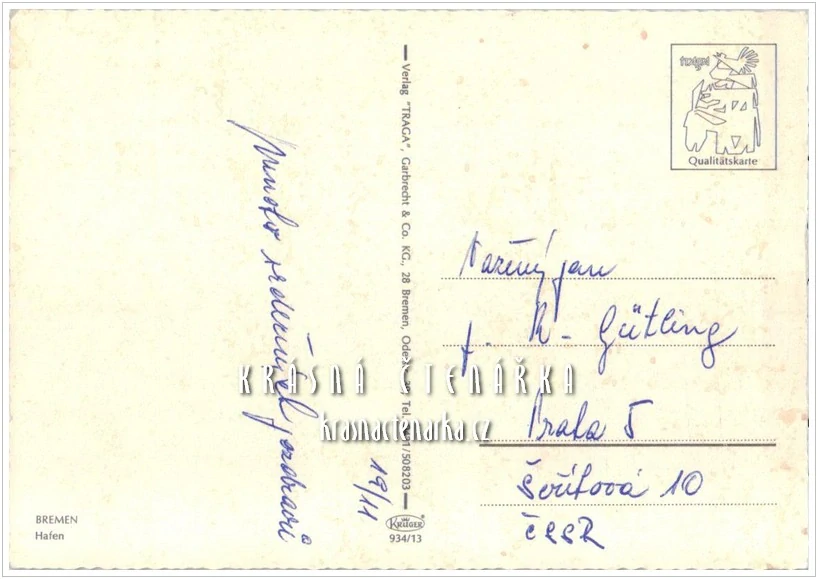 Mnoho srdečných pozdravů
19/11
BREMEN
Hafen
Verlag "TRAGA", Garbrecht & Co. KG., 28 Bremen, Tel. /508203
KRÜGER
934/13
Qualitätskarte
Vážený pan
K. Gütling
Praha 5
10
ČSSR
KRÁSNÁ ČTENÁŘKA
krasnactenarka.cz